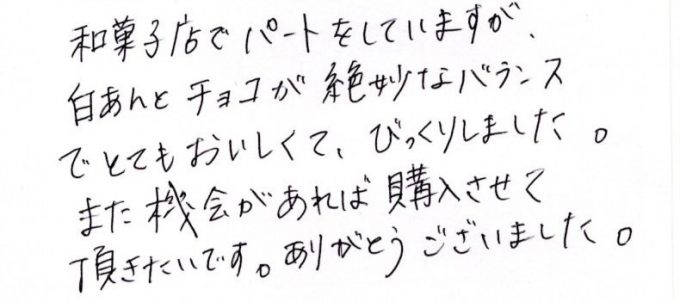 和菓子店でパートをしていますが、
白あんとチョコが絶妙なバランス
でとてもおいしくて、びっくりしました。
また機会があれば購入させて
頂きたいです。ありがとうございました。